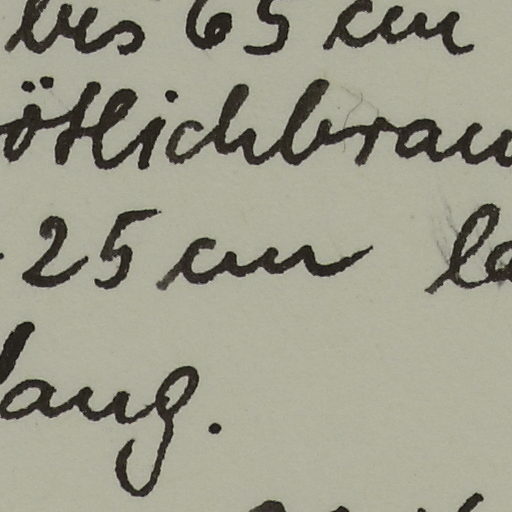 bis 65 cm
ötlichbrau
25 cm la
lang.